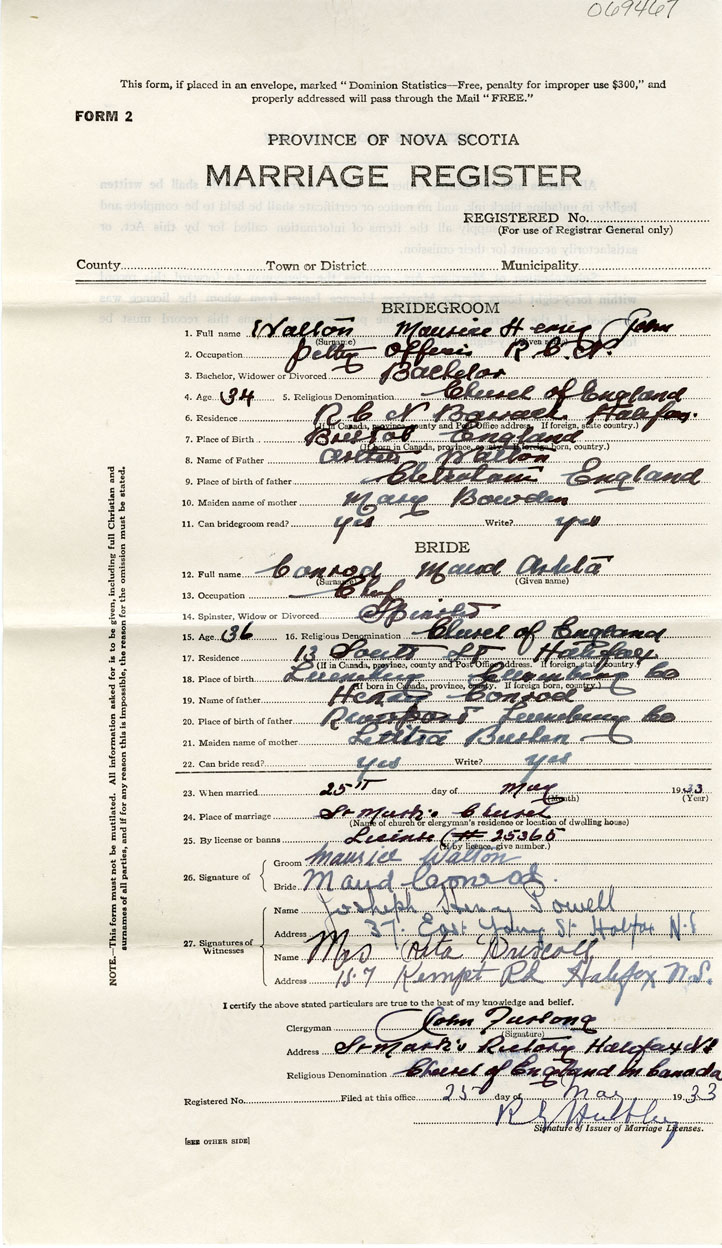 069467
This form, if placed in an envelope, marked "Dominion Statistics—Free, penalty for improper use $300," and
properly addressed will pass through the Mail "FREE."
FORM 2
PROVINCE OF NOVA SCOTIA
MARRIAGE REGISTER
REGISTERED No.
(For use of Registrar General only)
County Town or District Municipality
BRIDEGROOM
1. Full name Walton Maurice Henry John
(Surname) (Given name)
2. Occupation Petty Officer R.C.N.
3. Bachelor, Widower or Divorced Bachelor
4. Age 34 5. Religious Denomination Church of England
6. Residence R C N Barrack Halifax.
(If in Canada, province, county and Post Office address. If foreign, state country.)
7. Place of Birth Bristol England
(If born in Canada, province, county. If foreign born, country.)
8. Name of Father Walton
9. Place of birth of father England
10. Maiden name of mother Mary Bowden
11. Can bridegroom read? yes Write? yes
BRIDE
12. Full name Conrod Maud
(Surname) (Given name)
13. Occupation
14. Spinster, Widow or Divorced Spinster
15. Age 36 16. Religious Denomination Church of England
17. Residence 13 South St Halifax
(If in Canada, province, county and Post Office address. If foreign, state country.)
18. Place of birth Lunenburg Lunenburg Co
(If born in Canada, province, county. If foreign born, country.)
19. Name of father Henry Conrod
20. Place of birth of father Lunenburg Co
21. Maiden name of mother Letitia
22. Can bride read? yes Write? yes
23. When married 25th day of May 1933
(Month) (Year)
24. Place of marriage St Mark's Church
(Name of church or clergyman's residence or location of dwelling house)
25. By license or banns License (# 25365
(If by licence, give number.)
26. Signature of
Groom Maurice Walton
Bride Maud Conrod.
27. Signatures of Witnesses
Name Joseph Henry Powell
Address 37. East Young St. Halifax N.S
Name Mrs Rita Driscoll
Address 157 Kempt Rd Halifax N.S.
I certify the above stated particulars are true to the best of my knowledge and belief.
Clergyman John Furlong
(Signature)
Address St Mark's Rectory Halifax NS
Religious Denomination Church of England in Canada
Registered No. Filed at this office 25 day of May 1933
Signature of Issuer of Marriage Licenses.
[SEE OTHER SIDE]
NOTE.—This form must not be mutilated. All information asked for is to be given, including full Christian and
surnames of all parties, and if for any reason this is impossible, the reason for the omission must be stated.